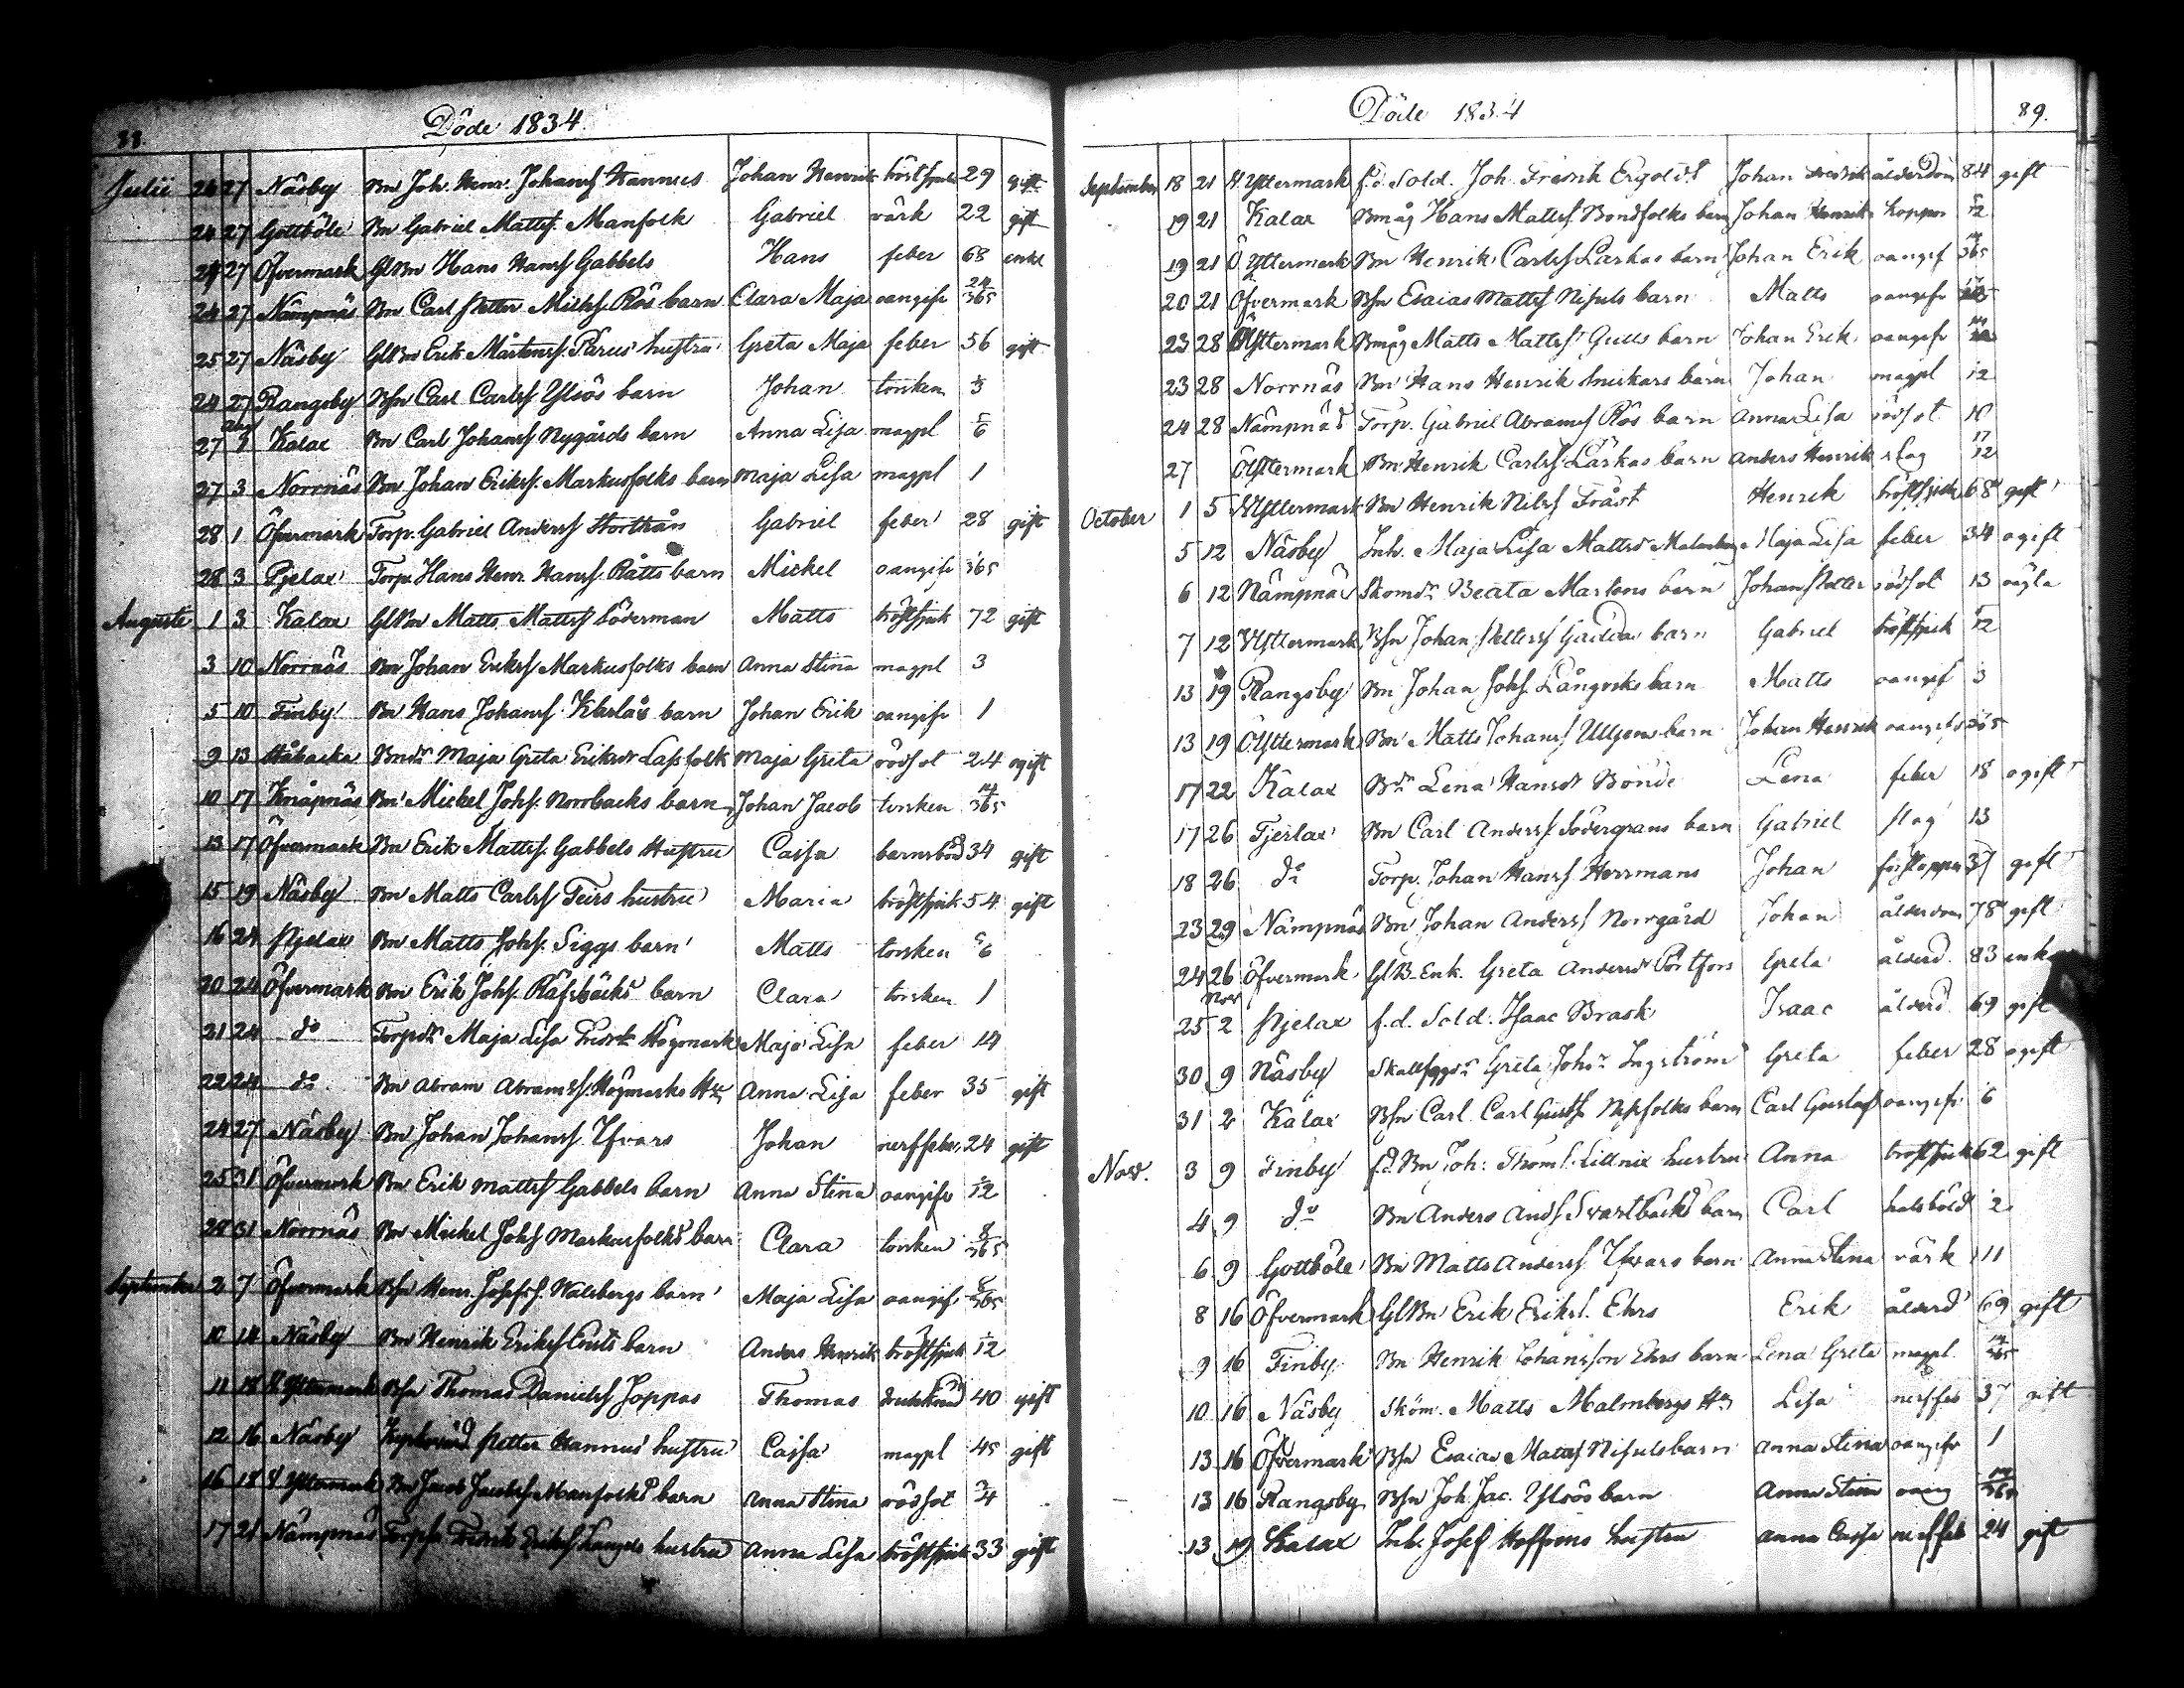 88.
Döde 1834.
Julii 24 27 Näsby Bn Joh. Henr. Johansf Hannus Johan Henrik bröstsjuk 29 gift
24 27 Gottböle Bn Gabriel Mattsf. Manfolk Gabriel värk 22 gift
24 27 Öfvermark GlBn Hans Hansf Gabbels Hans feber 68 enkl
24 27 Nämpnäs Bn Carl Petter Mickf. Rös barn Clara Maja oangifv 24/365
25 27 Näsby GlBns Erik Mårtensf. Pärus hustru Greta Maja feber 56 gift
24 27 Rangsby Bsn Carl Carlsf Ylsiös barn Johan torsken
27 Aug 1 Kalax Bn Carl Johansf Nygårds barn Anna Lisa magpl
27 3 Norrnäs Bn Johan Eriksf. Markusfolks barn Maja Lisa magpl 1
28 1 Öfvermark Torp. Gabriel Andersf Storthån Gabriel feber 28 gift
28 3 Pjelax Torp. Hans Henr. Hansf. Rätts barn Mickel oangifv
Augusti 1 3 Kalax GlBn Matts Mattsf Söderman Matts bröstsjuk 72 gift
3 10 Norrnäs Bn Johan Eriksf Markusfolks barn Anna Stina magpl 3
5 10 Finby Bn Hans Johansf. barn Johan Erik oangifv 1
9 13 Håbacka Bndr Maja Greta Eriksdr Lassfolk Maja Greta rödsot 24 ogift
10 17 Knåpnäs Bn Mickel Johsf. Norrbacks barn Johan Jacob torsken 14/365
13 17 Öfvermark Bn Erik Mattsf. Gabbels Hustru Caisa barnsbörd 34 gift
15 19 Näsby Bn Matts Carlsf Teirs hustru Maria bröstsjuk 54 gift
16 24 Pjelax Bn Matts Johsf. Siggs barn Matts torsken
20 24 Öfvermark Bn Erik Johsf. Räfsbäcks barn Clara torsken 1
21 24 do Torpdr Maja Lisa Högmark Maja Lisa feber 14
22 24 do Bn Abram Abramsf. Högmarks Hu Anna Lisa feber 35 gift
24 27 Näsby Bn Johan Johansf. Ifvars Johan nerffeber 24 gift
25 31 Öfvermark Bn Erik Mattsf Gabbels barn Anna Stina oangifv
28 31 Norrnäs Bn Mickel Johsf Markusfolks barn Clara torsken 8/365
September 2 7 Öfvermark Bsn Henr. Josefsf. Walsbergs barn Maja Lisa oangifv
10 14 Näsby Bn Henrik Eriksf barn Anders Henrik bröstsjuk
11 18 Y. Yttermark Bsn Thomas Danielsf Joppas Thomas 40 gift
12 16 Näsby Petter Hannus hustru Caisa magpl 45 gift
16 18 Y Yttermark Bn Jacob Jacobsf Manfolks barn Anna Stina rödsot 3/4
17 21 Nämpnäs Eriksf. hustru Anna Lisa bröstsjuk 33 gift
Döde 1834
89.
September 18 21 Y. Yttermark f.d. Sold. Joh. Fredrik Ergoldt Johan Fredrik ålderdom 84 gift
19 21 Kalax Bmåg Hans Mattsf Bondfolks barn Johan Henrik koppor
19 21 Ö Yttermark Bn Henrik Carlsf Lärkas barn Johan Erik oangif 14/365
20 21 Öfvermark Bsn Esaias Mattsf Nisuls barn Matts oangifv
23 28 Ö Yttermark Bmåg Matts Mattsf Gulls barn Johan Erik oangifv
23 28 Norrnäs Bn Hans Henrik Snickars barn Johan magpl
24 28 Nämpnäs Torp. Gabriel Abramsf Rös barn Anna Lisa rödsot 10
27 Ö Yttermark Bn Henrik Carlsf Lärkas barn Anders Henrik slag
October 1 5 Y Yttermark Bn Henrik Nilsf Fråst Henrik bröstsjuk 68 gift
5 12 Näsby Inh. Maja Lisa Mattsdr Maja Lisa feber 34 ogift
6 12 Nämpnäs Skomdr Beata Martens barn Johan Petter rödsot 13 oägta
7 12 Y Yttermark Bsn Johan Pettersf Gäddas barn Gabriel bröstsjuk
13 19 Rangsby Bn Johan Johsf. Långviks barn Matts oangif 3
13 19 Ö. Yttermark Bn Matts Johansf Ullgens barn Johan Henrik oangifv
17 22 Kalax Bdr Lena Hansdr Bonde Lena feber 18 ogift
17 26 Tjerlax Bn Carl Andersf. Södergrans barn Gabriel slag 13
18 26 do Torp. Johan Hansf. Herrmans Johan 37 gift
23 29 Nämpnäs Bn Johan Andersf Norrgård Johan ålderdom 78 gift
24 26 Öfvermark GlB. Enk. Greta Andersdr Portfors Greta ålderd. 83 enka
25 Nov 2 Pjelax f.d. Sold. Isaac Brask Isaac ålderd. 69 gift
30 9 Näsby Greta Johsdr Ingström Greta feber 28 ogift
31 2 Kalax Bsn Carl Carl Gustfs Nissfolks barn Carl Gustaf oangifv 6
Nov. 3 9 Finby f.d. Bn Joh. Thoms. Littnix hustru Anna bröstsjuk 62 gift
4 9 do Bn Anders Andsf Svartbäcks barn Carl halsböld 2
6 9 Gottböle Bn Matts Andersf Ifvars barn Anna Stina värk 11
8 16 Öfvermark GlBn Erik Eriksf. Ehrs Erik ålderd 69 gift
9 16 Finby Bn Henrik Johansson Ehrs barn Lena Greta magpl 14/365
10 16 Näsby Skom. Matts Malmbergs Hu Lisa nerffeb 37 gift
13 16 Öfvermark Bsn Esaias Matssf Nisuls barn Anna Stina oangifv 1
13 16 Rangsby Bsn Joh. Jac. Ylsiös barn Anna Stina oang
13 19 Kalax Inh. Josef Hoffrens hustru Anna Caisa nerffeb 24 gift